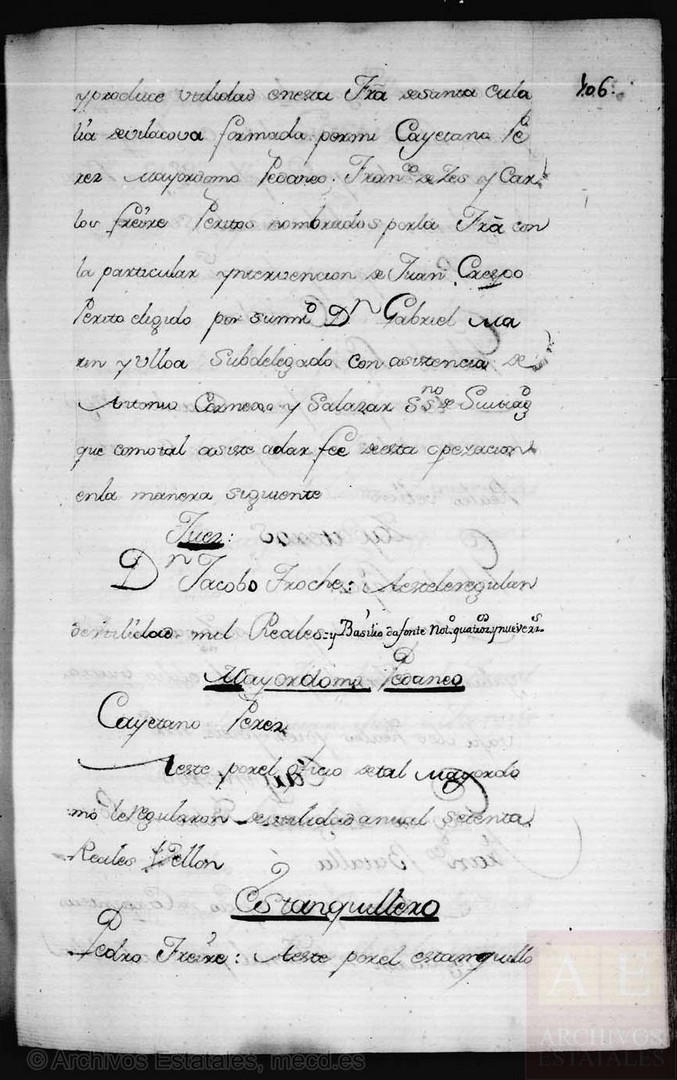 406.
y produce utilidad en esta Frã de santa eula
lia de vilacova formada por mi Cayetano Pe
rez Mayordomo Pedaneo: Franco de Zes y Car
los freire Peritos nombrados por la Frã con
la particular yntervencion de Juan Crespo
Perito eligido por su mrd Dn Gabriel Ma
rin y Ulloa Subdelegado con asistencia de
Antonio Cornexo y Salazar Ssno de Santiago
que como tal asiste a dar fee de esta operacion
en la manera siguiente
Juez:
Dn Jacobo Troche: A este le regulan
de utilidad mil Reales = y Basilio da fonte Noto quatroz y nueve rs
Mayordomo Pedaneo
Cayetano Perez
A este por el oficio de tal Mayordo
mo le regularon de utilidad anual setenta
Reales Vellon
Estanquillero
Pedro Freire: A este por el estanquillo
© Archivos Estatales, mecd.es
AE
ARCHIVOS
ESTATALES